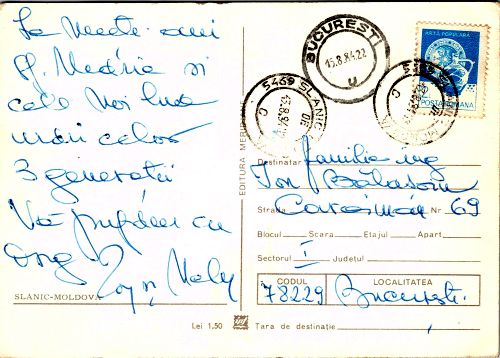 La mulți ani
Sf. Măria și
cele mai
mari celor
3 generații
Vă
SLANIC-MOLDOVA
EDITURA MERIDIANE
BUCUREȘTI
15.8.84.22
U
5469 SLANIC
ARTĂ POPULARĂ
POSTA ROMANA
Destinatar familia ing
Ion
Strada Caraiman Nr 69
Blocul Scara Etajul Apart
Sectorul I Județul
CODUL LOCALITATEA
78229 București.
Lei 1,50 Țara de destinație